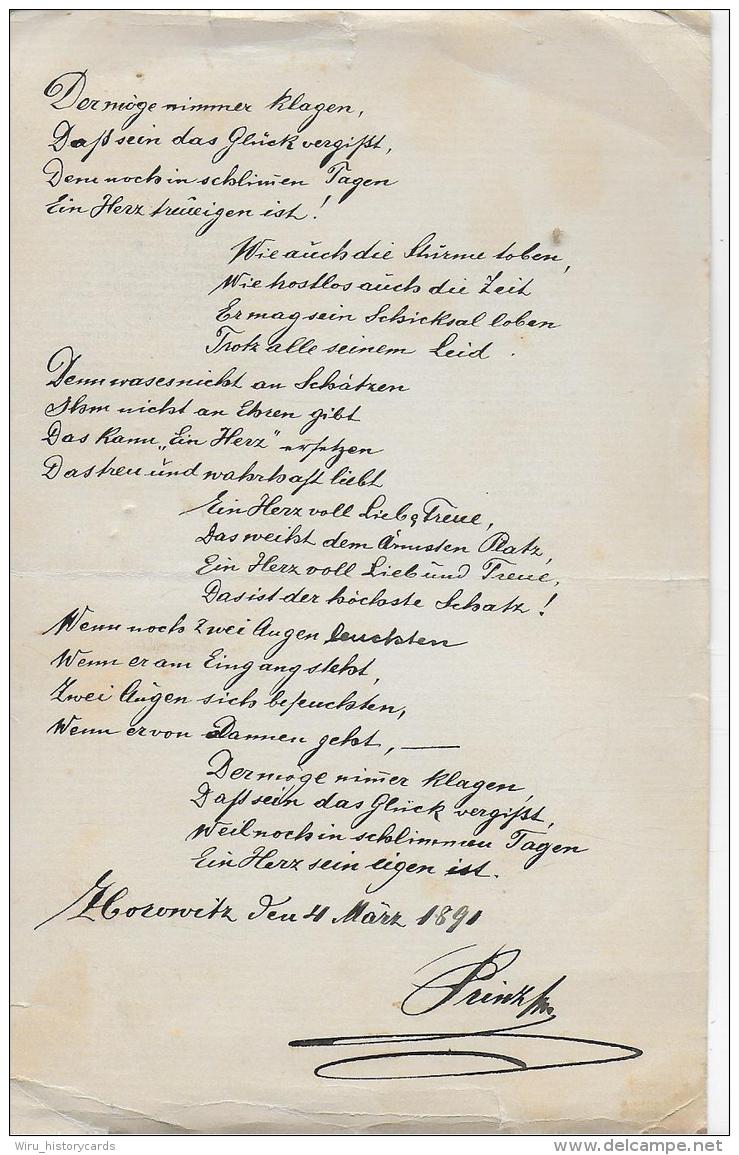 Der möge nimmer klagen,
Daß sein das Glück vergißt,
Dem noch in schlimen Tagen
Ein Herz treu eigen ist!
Wie auch die Stürme toben,
Wie hostlos auch die Zeit
Er mag sein Schicksal loben
Trotz alle seinem Leid.
Denn was es nicht an Schätzen
Ihm nicht an Ehren gibt
Das kann „Ein Herz" ersetzen
Das treu und wahrhaft liebt
Ein Herz voll Lieb & Treue,
Das weiht dem Ärmsten Platz,
Ein Herz voll Lieb und Treue,
Das ist der höchste Schatz!
Wenn noch zwei Augen leuchten
Wenn er am Eingang steht,
Zwei Augen sich befeuchten,
Wenn er von Dannen geht, —
Der möge nimer klagen,
Daß sein das Glück vergißt,
Weil noch in schlimmen Tagen
Ein Herz sein eigen ist.
Horowitz den 4 März 1891
Wiru_historycards
delcampe.net